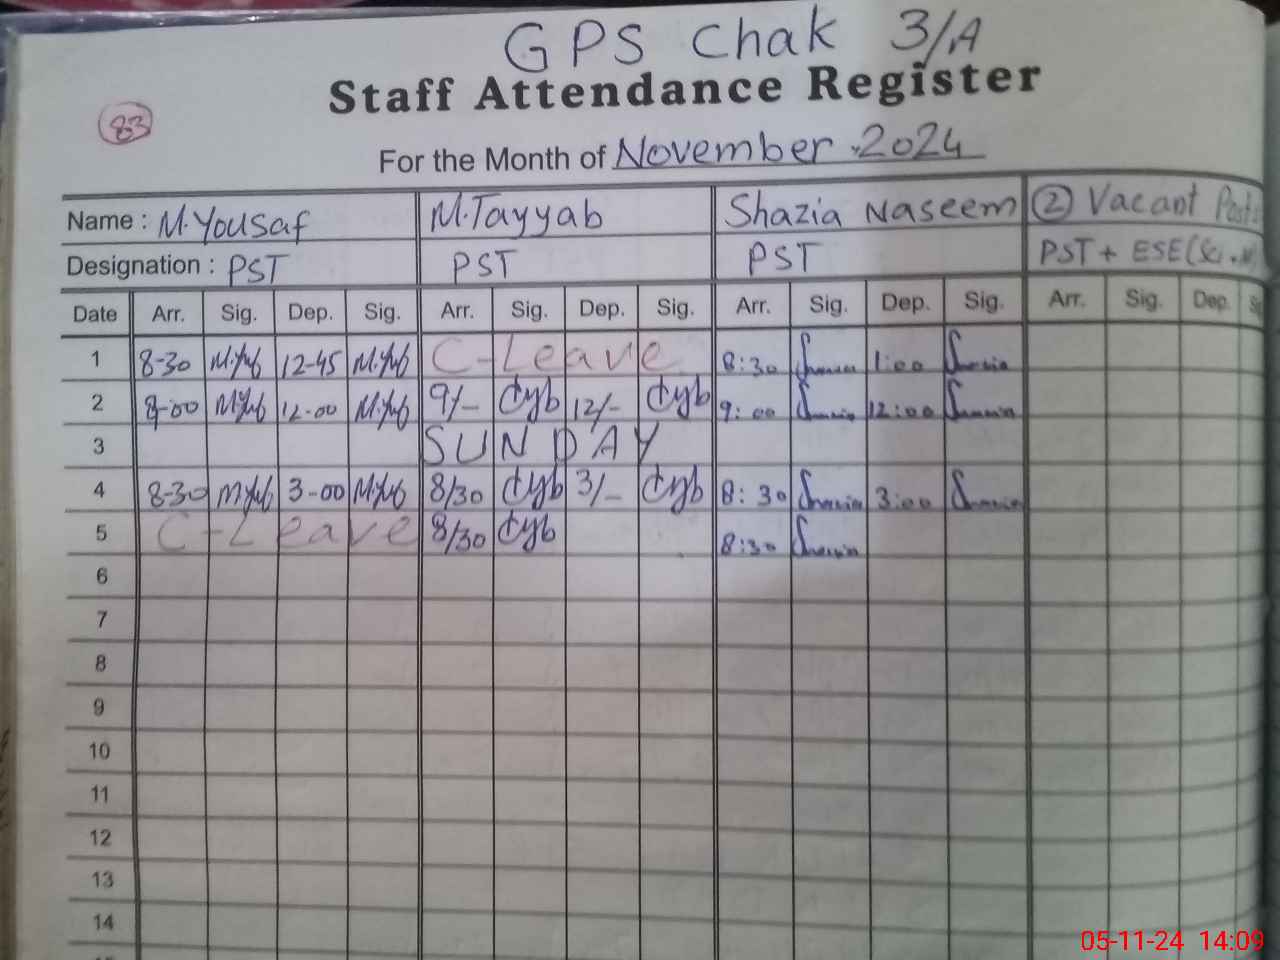 GPS Chak 3/A
Staff Attendance Register
83
For the Month of November 2024
Name : M.Yousaf M.Tayyab Shazia Naseem ② Vacant
Designation : PST PST PST PST + ESE
Date Arr. Sig. Dep. Sig. Arr. Sig. Dep. Sig. Arr. Sig. Dep. Sig. Arr. Sig. Dep.
1 8-30 12-45 C-Leave 8:30 1:00
2 8-00 12-00 9/- 12/- 9:00 12:00
3 SUNDAY
4 8-30 3-00 8/30 3/- 8:30 3:00
5 C-Leave 8/30 8:30
6
7
8
9
10
11
12
13
14
05-11-24 14:09